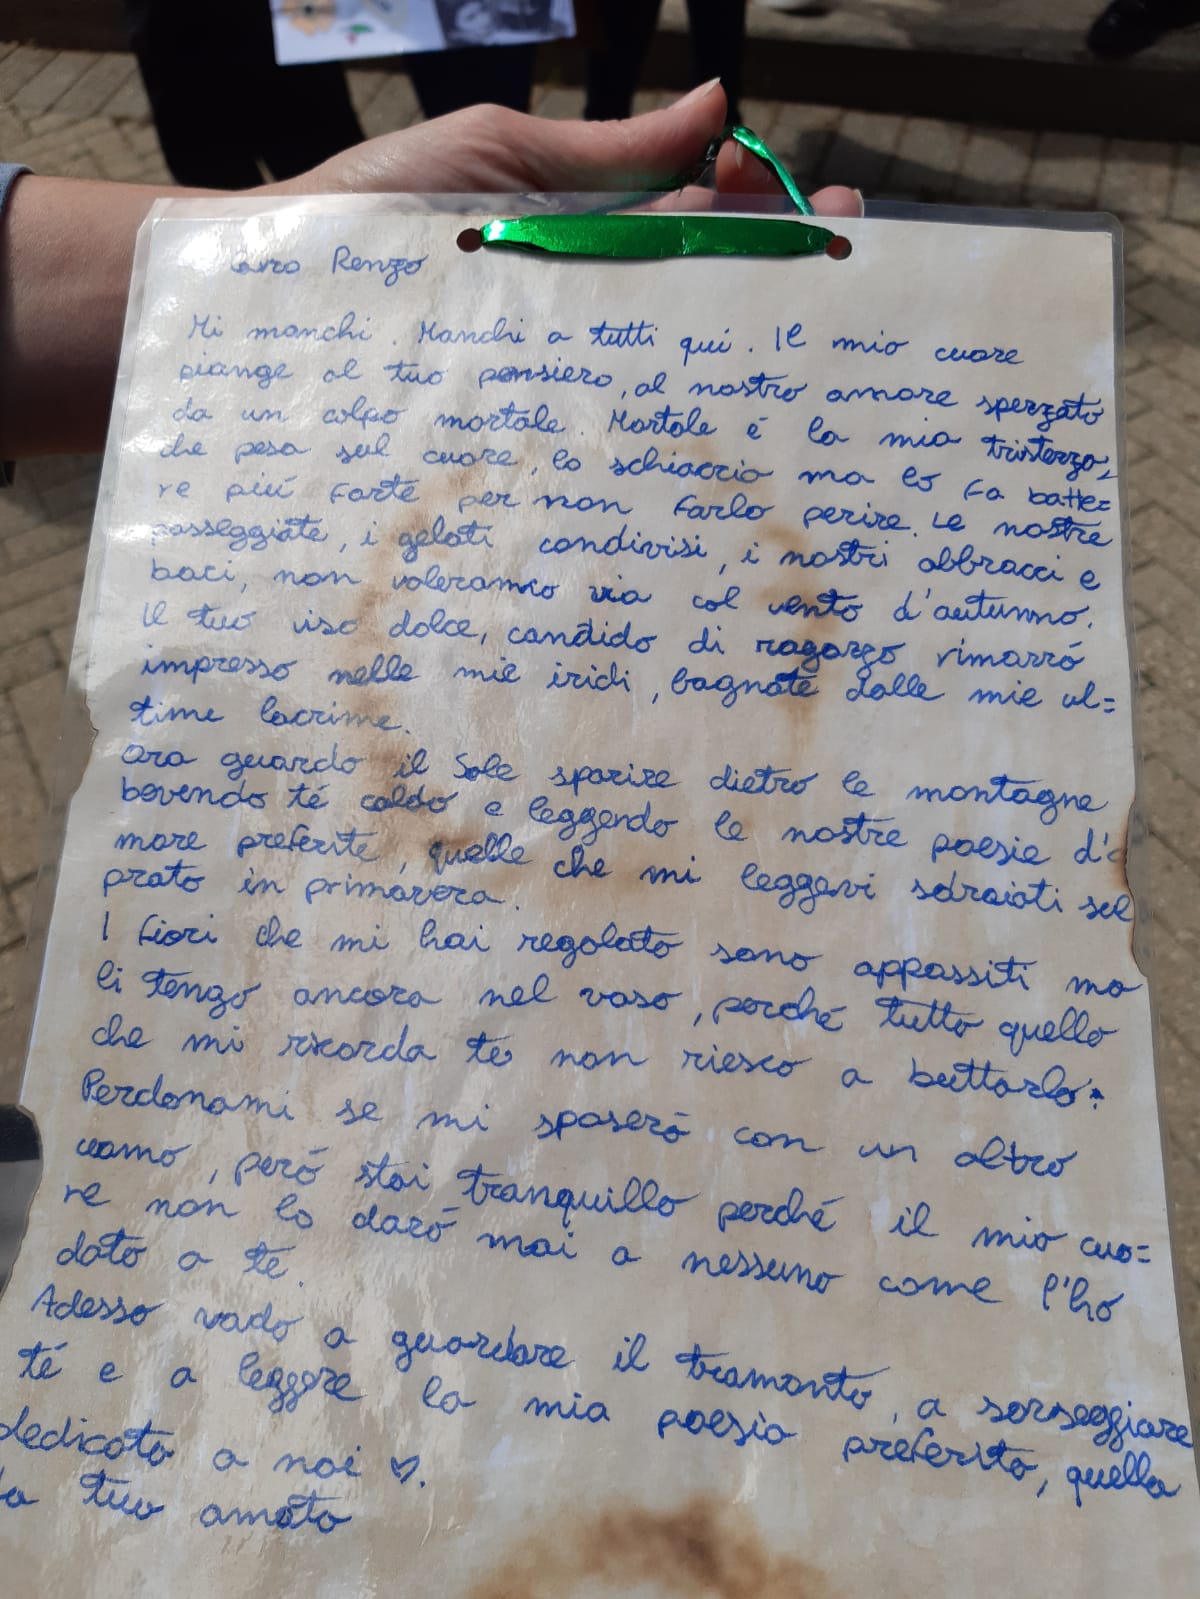 Caro Renzo
Mi manchi. Manchi a tutti qui. Il mio cuore
piange al tuo pensiero, al nostro amore sperzato
da un colpo mortale. Mortale é la mia tristezza,
che pesa sul cuore, lo schiaccia ma lo fa batte=
re piú forte per non farlo perire. Le nostre
passeggiate, i gelati condivisi, i nostri abbracci e
baci, non voleranno via col vento d'autunno.
Il tuo viso dolce, candido di ragazzo rimarrá
impresso nelle mie iridi, bagnate dalle mie ul=
time lacrime.
Ora guardo il Sole sparire dietro le montagne
bevendo té caldo e leggendo le nostre poesie d'a
more preferite, quelle che mi leggevi sdraiati sul
prato in primavera.
I fiori che mi hai regalato sono appassiti ma
li tengo ancora nel vaso, perché tutto quello
che mi ricorda te non riesco a buttarlo.
Perdonami se mi sposeró con un altro
uomo, peró stai tranquillo perché il mio cuo=
re non lo daró mai a nessuno come l'ho
dato a te.
Adesso vado a guardare il tramonto, a sorseggiare
té e a leggere la mia poesia preferita, quella
dedicata a noi ♡.
la tua amata